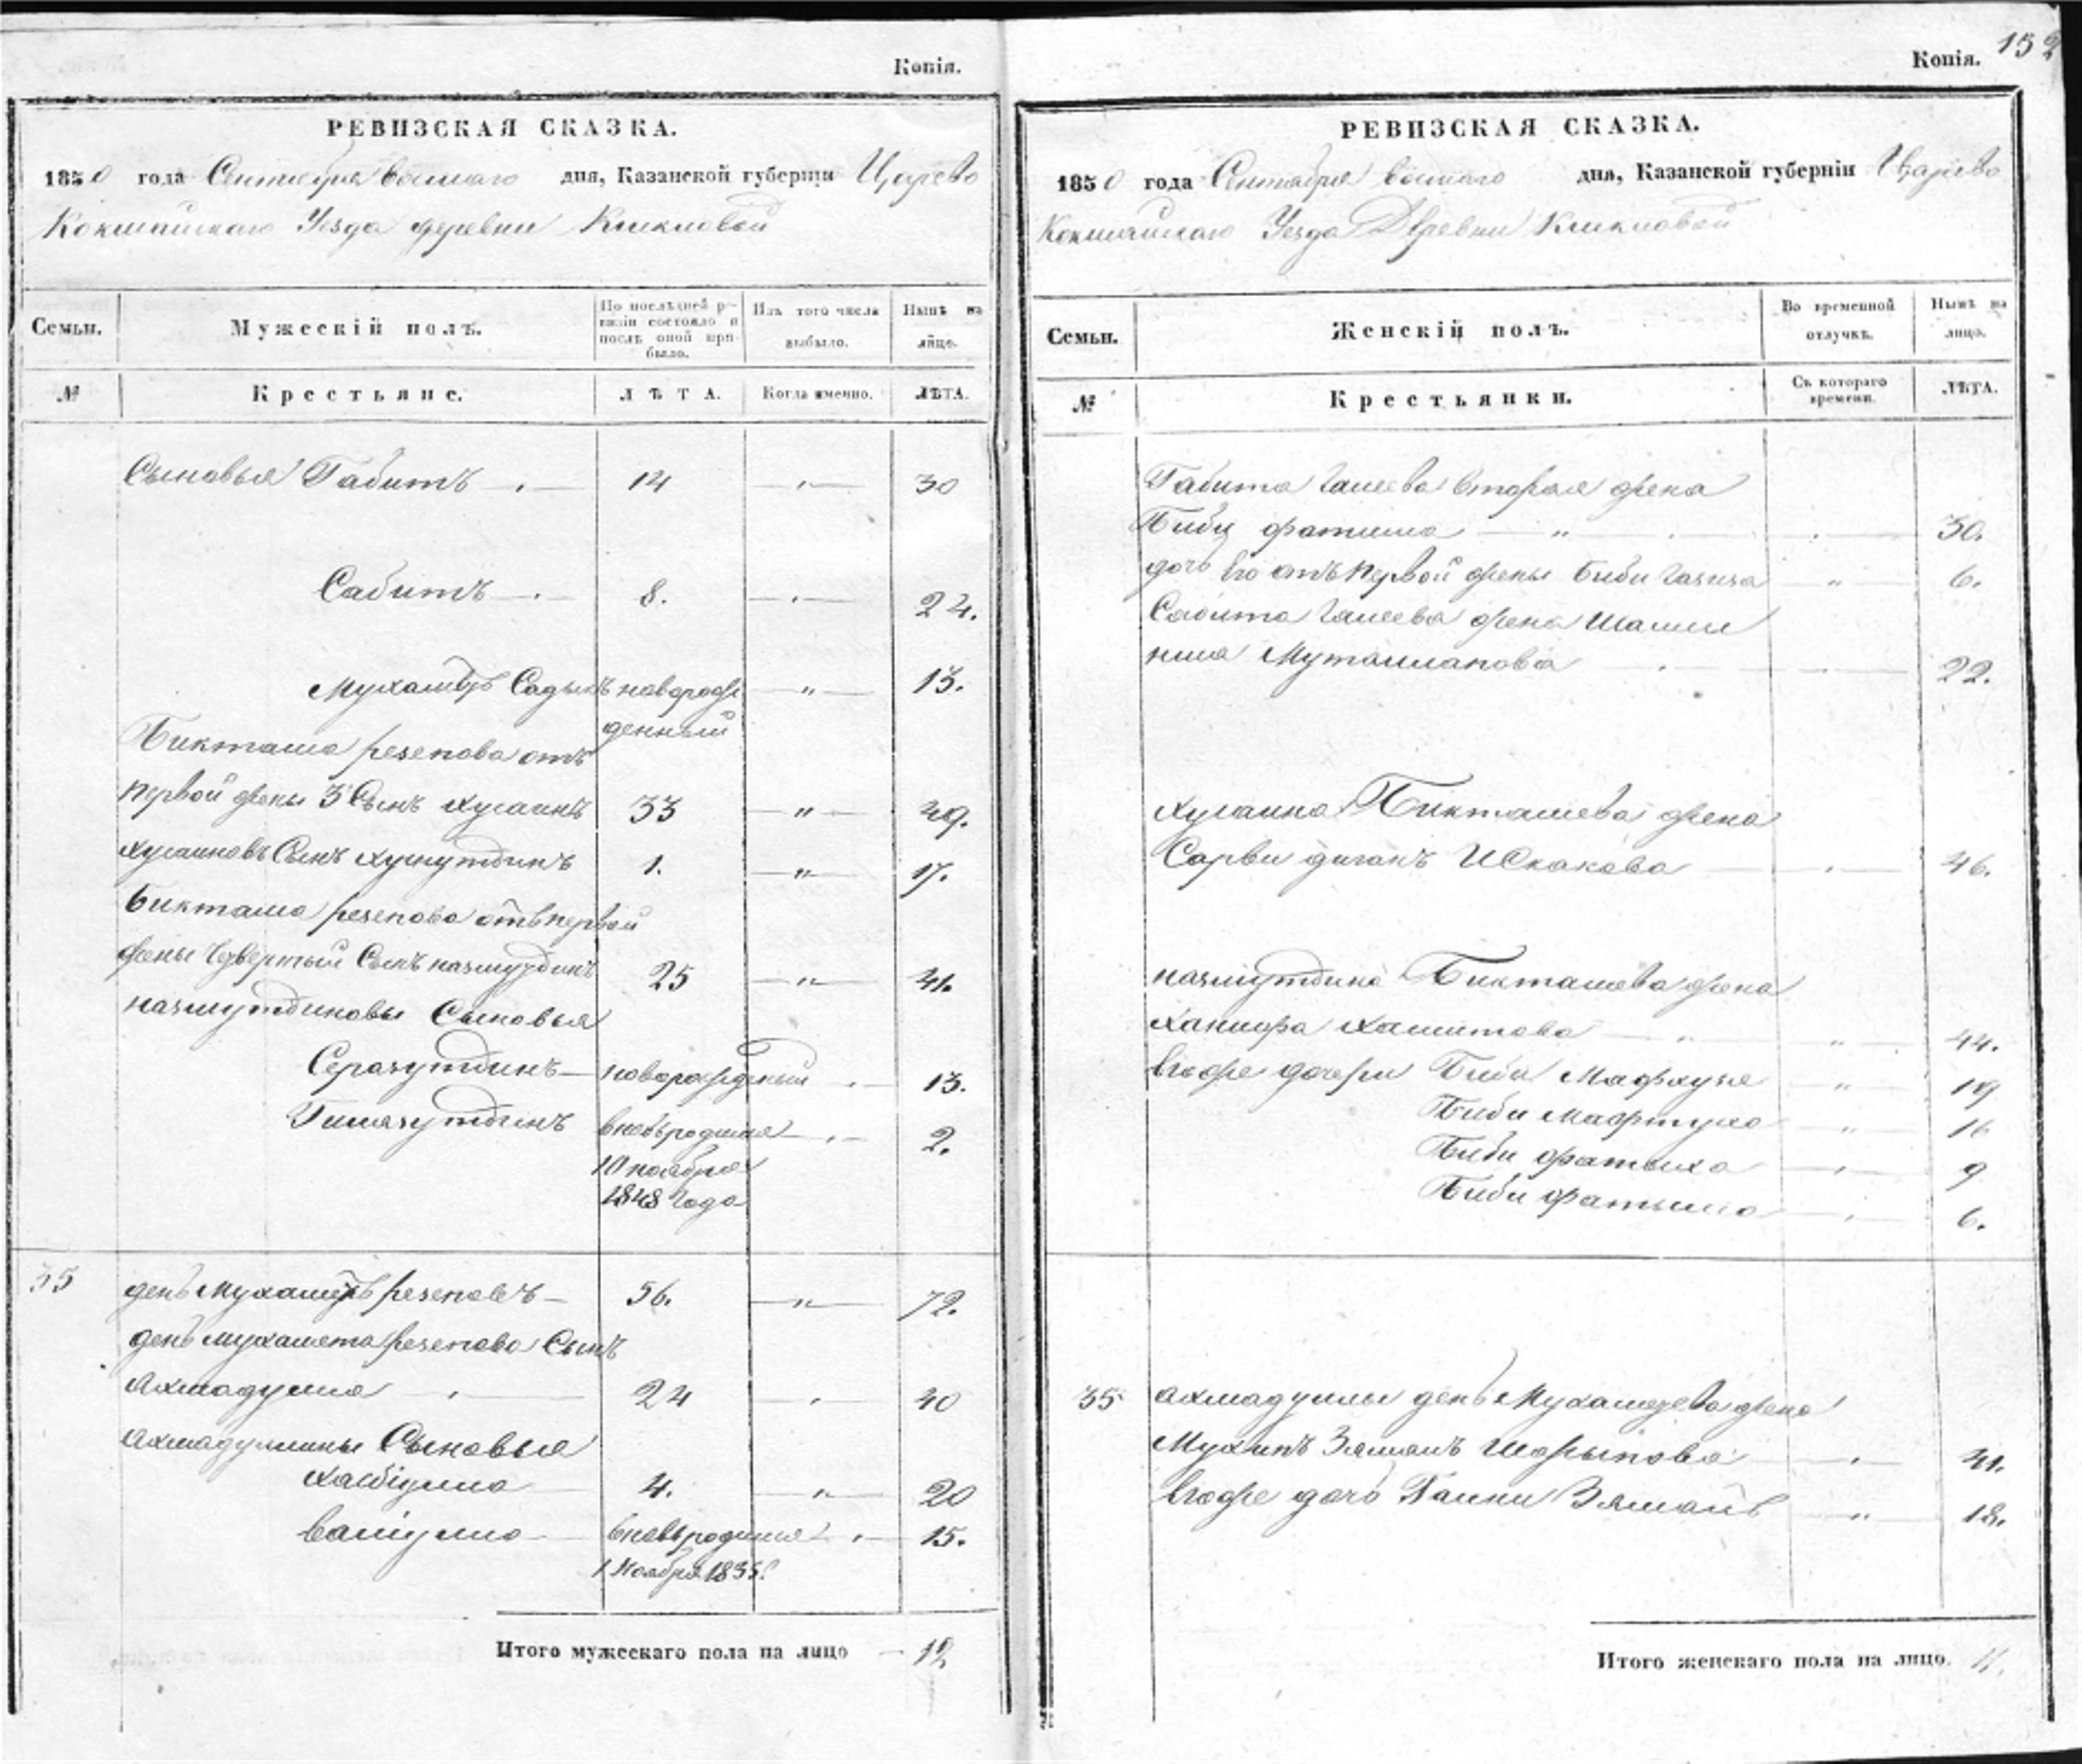 Копія.
РЕВИЗСКАЯ СКАЗКА.
1850 года Сентября восмаго дня, Казанской губерніи Царево
Кокшайскаго Уезда деревни
Семьи.
Мужескій полъ.
По послѣдней ре-
визіи состояло и
послѣ оной при-
было.
Изъ того числа
выбыло.
Нынѣ на
лицо.
№
Крестьяне.
ЛѢТА.
Когда именно.
ЛѢТА.
Сыновья Габитъ 14 30
Сабитъ 8. 24.
Мухаметъ Садыкъ новорож 13.
денный
Бикташа резепова отъ
первой жены 3 Сынъ хусаинъ 33 49.
хусаиновъ Сынъ 1. 17.
Бикташа резепова отъ первой
жены Четвертый Сынъ назмутдинъ 25 41.
назмутдиновы Сыновья
Серазутдинъ новорожденный 13.
Гилязутдинъ вновь родился 2.
10 ноября
1848 года
35 денъ Мухаметъ резеповъ 56. 72.
денъ мухамета резепова Сынъ
Ахмадулла 24 40
Ахмадуллины Сыновья
хабіулла 4. 20
валіулла вновь родился 15.
1 Ноября 1835
Итого мужескаго пола на лицо 12
152
Копія.
РЕВИЗСКАЯ СКАЗКА.
1850 года Сентября восмаго дня, Казанской губерніи Царево
Кокшайскаго Уезда Деревни
Семьи.
Женскій полъ.
Во временной
отлучкѣ.
Нынѣ на
лицо.
№
Крестьянки.
Съ котораго
времени.
ЛѢТА.
Габита Галеева вторая жена
Биби фатима 30.
дочь его отъ первой жены Биби Газиза 6.
Сабита Галеева жена Шамси
ниса 22.
хусаина Бикташева жена
Сарви Искакова 46.
назмутдина Бикташева жена
ханифа хамитова 44.
Ево же дочери Биби Мафхузя 19
Биби Мафтуха 16
Биби фатиха 9
Биби фатыма 6.
35 ахмадуллы денъ Мухаметева жена
Зямалъ Шарыпова 41.
Ево же дочь Зямалъ 18.
Итого женскаго пола на лицо. 11.